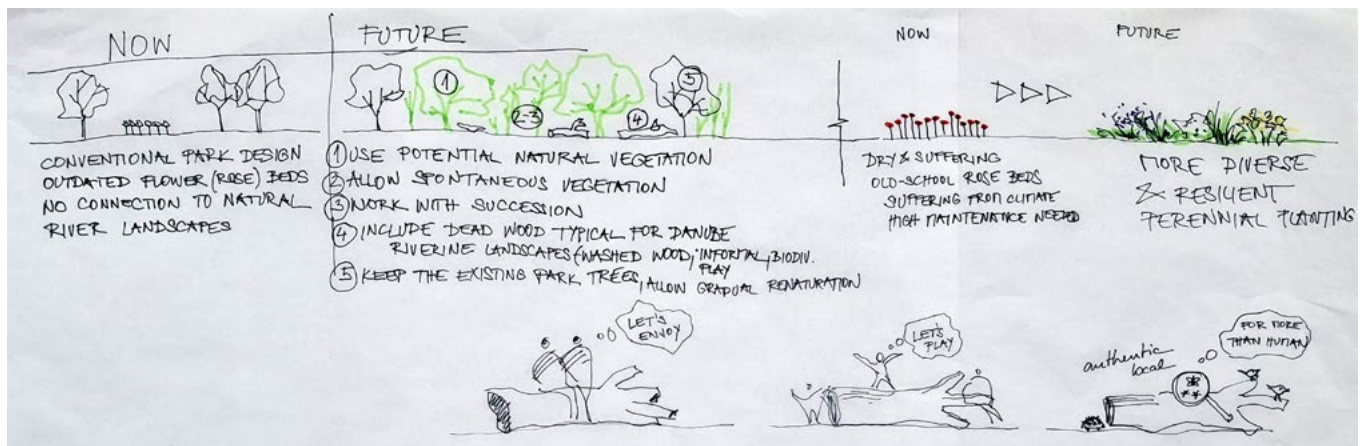 NOW
CONVENTIONAL PARK DESIGN
OUTDATED FLOWER (ROSE) BEDS
NO CONNECTION TO NATURAL
RIVER LANDSCAPES
FUTURE
1
2-3
4
5
① USE POTENTIAL NATURAL VEGETATION
② ALLOW SPONTANEOUS VEGETATION
③ WORK WITH SUCCESSION
④ INCLUDE DEAD WOOD TYPICAL FOR DANUBE
RIVERINE LANDSCAPES (WASHED WOOD, "INFORMAL, BIODIV.
PLAY
⑤ KEEP THE EXISTING PARK TREES, ALLOW GRADUAL RENATURATION
NOW
DRY & SUFFERING
OLD-SCHOOL ROSE BEDS
SUFFERING FROM CLIMATE
HIGH MAINTENANCE NEEDED
FUTURE
MORE DIVERSE
& RESILIENT
PERENNIAL PLANTING
LET'S
ENVOY
LET'S
PLAY
authentic
local
FOR MORE
THAN HUMAN